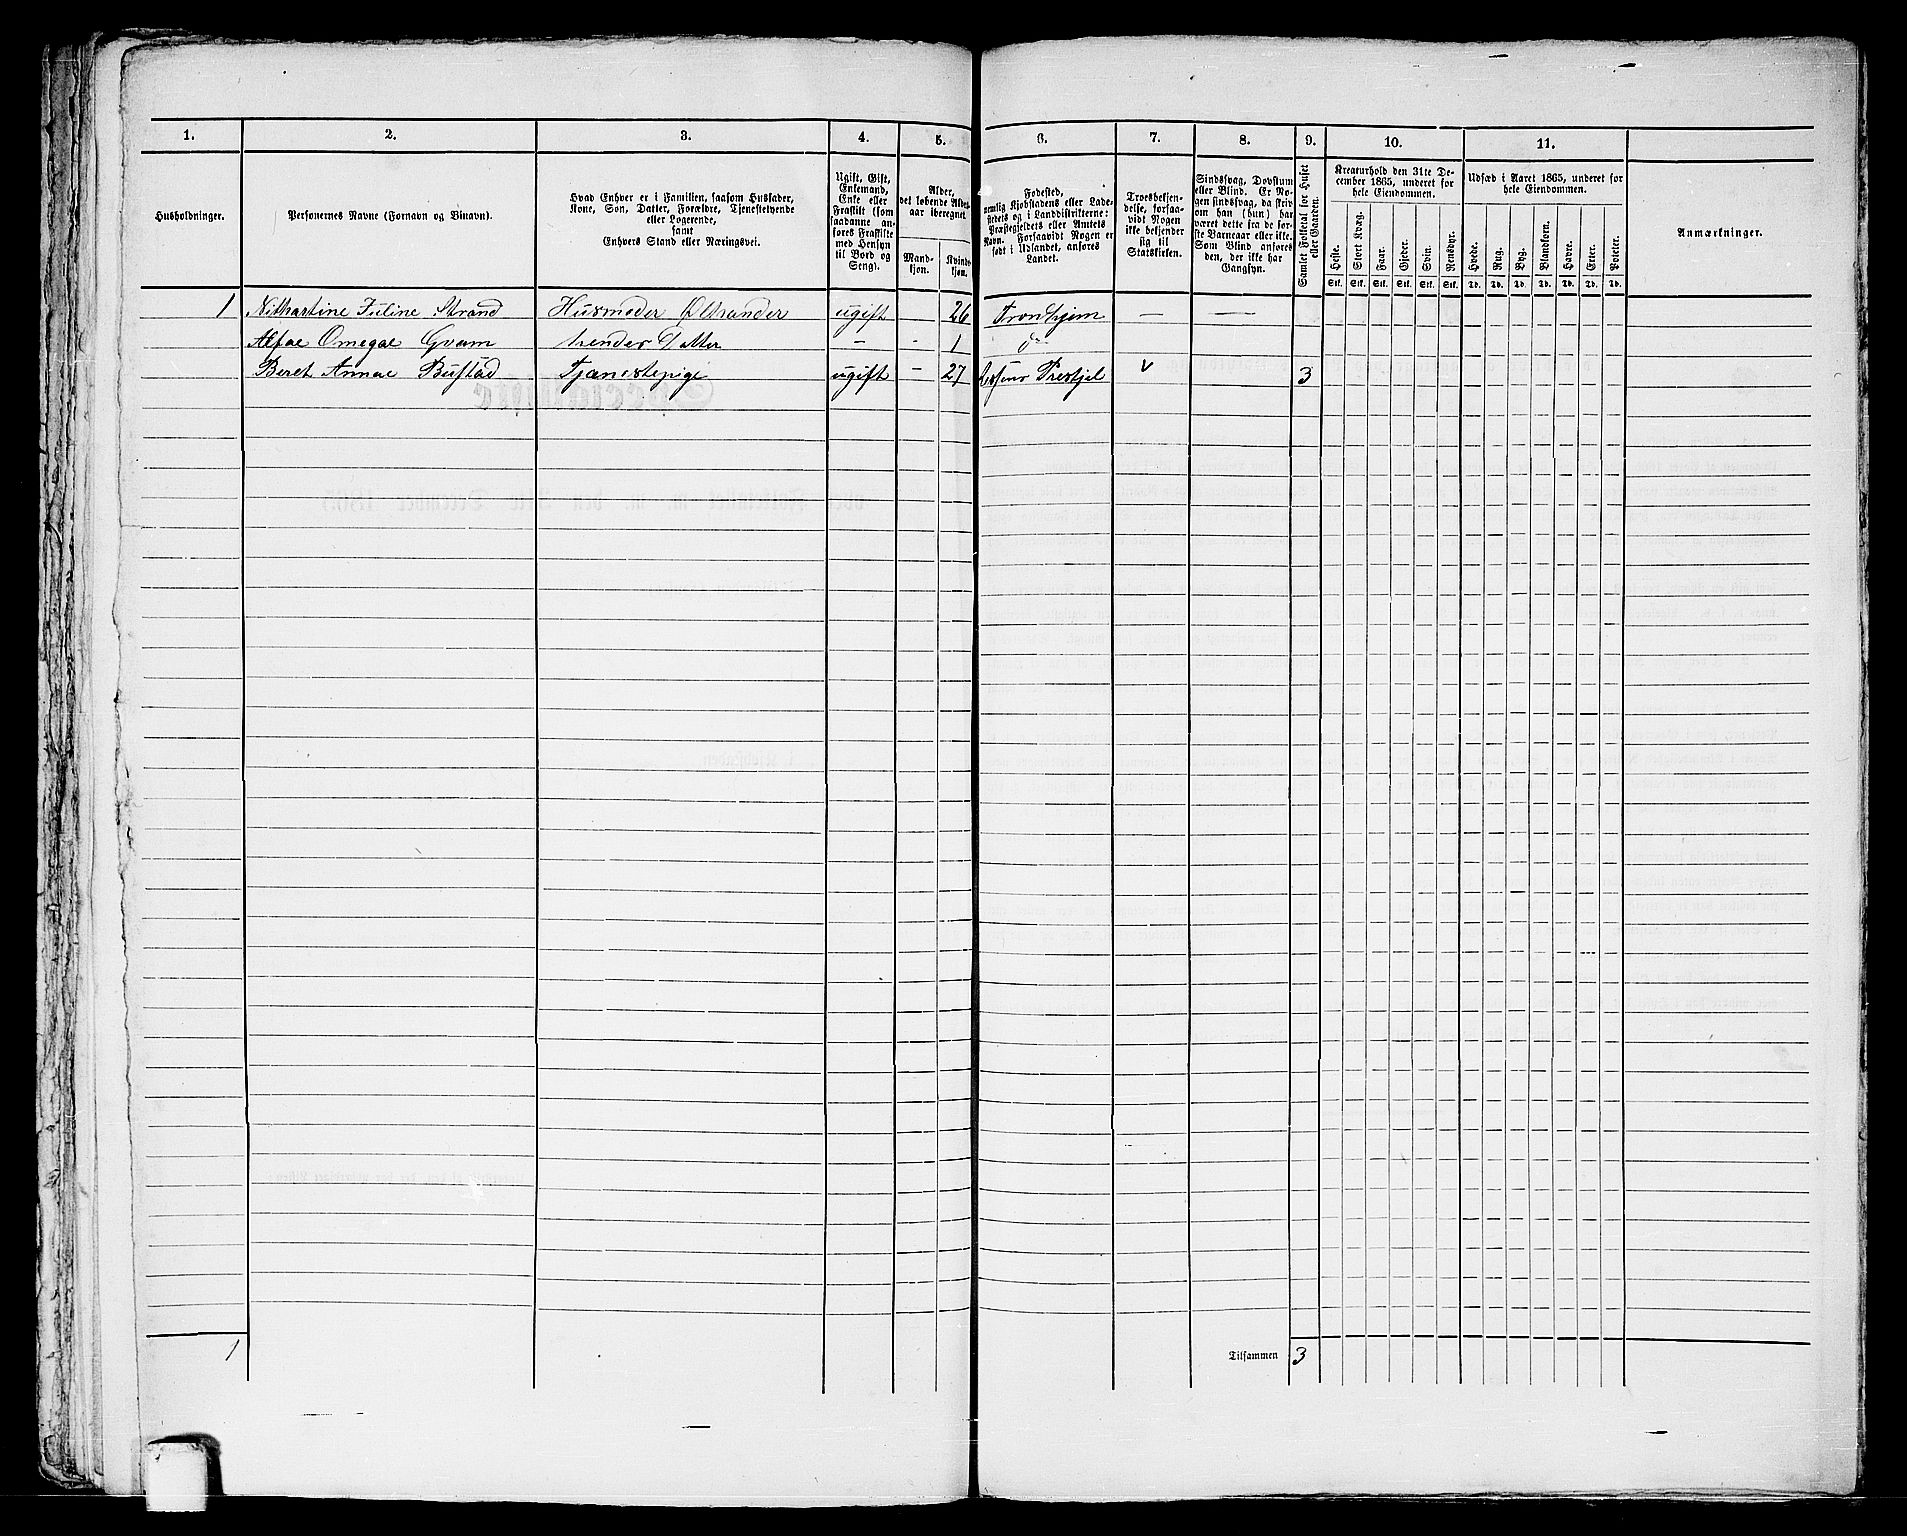 1. 2. 3. 4. 5. 6. 7. 8. 9. 10. 11.
Husholdninger.
Personernes Navne (Fornavn og Binavn).
Hvad Enhver er i Familien, saasom Husfader,
Kone, Søn, Datter, Forældre, Tjenestetyende
eller Logerende,
samt
Enhvers Stand eller Næringsvei.
Ugift, Gift,
Enkemand,
Enke eller
Fraskilt (som
saadanne an-
føres Fraskilte
med Hensyn
til Bord og
Seng).
Alder,
det løbende Alders-
aar iberegnet.
Mand-
kjøn.
Kvinde-
kjøn.
Fødested,
nemlig Kjøbstadens eller Lade-
stedets og i Landdistrikterne:
Præstegjeldets eller Amtets
Navn. Forsaavidt Nogen er
født i Udlandet, anføres
Landet.
Troesbekjen-
delse, forsaa-
vidt Nogen
ikke bekjender
sig til
Statskirken.
Sindssvag, Døvstum
eller Blind. Er No-
gen sindssvag, da skriv
om han (hun) har
været dette fra de før-
ste Barneaar eller ikke.
Som Blind anføres
den, der ikke har
Gangsyn.
Samlet Folketal for Huset
eller Gaarden.
Kreaturhold den 31te De-
cember 1865, underet for
hele Eiendommen.
Heste. Stort Kvæg. Faar. Gjeder. Svin. Rensdyr.
Stk. Stk. Stk. Stk. Stk. Stk.
Udsæd i Aaret 1865, underet for
hele Eiendommen.
Hvede. Rug. Byg. Blandkorn. Havre. Erter. Poteter.
Td. Td. Td. Td. Td. Td. Td.
Anmærkninger.
1 Juline Strand Husmoder ugift - 26 Trondhjem — —
Omegae Gram hendes Datter - - 1 do
Beret Annae Bustad Tjænestepige ugift - 27 3
1 Tilsammen 3